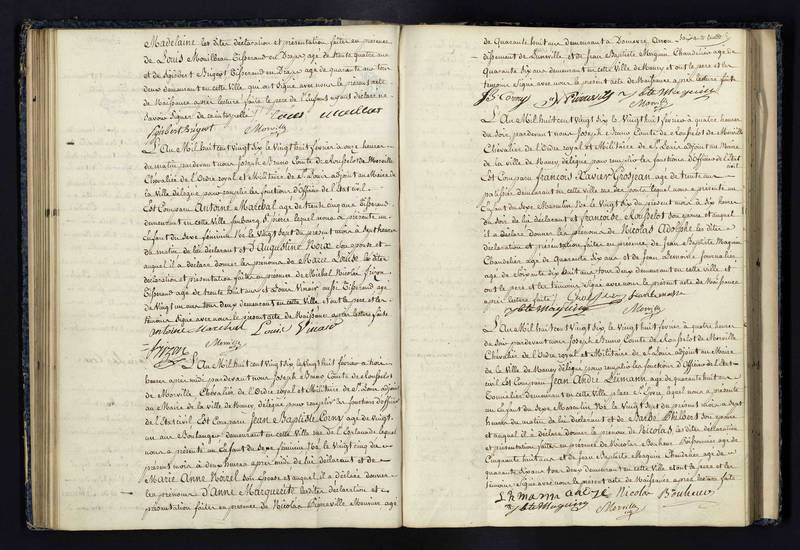 Madelaine les dites déclaration et présentation faites en présence
de Louis Mouilleau Tisserand en Draps agé de trente quatre ans
et de Sigisbert Bugeot Tisserand en Draps agé de quarante ans tous
deux demeurant en cette Ville qui ont Signé avec nous le présent acte
de Naissance après lecture faite le père de l'Enfant ayant déclaré ne
savoir Signer de ce interpellé
Morville
L'An Mil huit cent Vingt Six le Vingt huit février à onze heures
du matin pardevant nous Joseph Bruno Comte de
Chevalier de l'Ordre royal et Militaire de St Louis adjoint au Maire de
la Ville délégué pour remplir les fonctions d'Officier de l'Etat civil
Est Comparu Antoine Maréchal agé de trente cinq ans Tisserand
demeurant en cette Ville faubourg St pierre lequel nous a présenté un
Enfant du Sexe féminin Né le Vingt Sept du présent mois à Sept heures
du matin de lui déclarant et d'Augustine Noix Son épouse et
auquel il a déclaré donner les prénoms de Marie Louise les dites
déclaration et présentation faites en présence de Michel Nicolas
Tisserand agé de trente huit ans et Louis Vinair aussi Tisserand agé
de Vingt un ans tous deux demeurant en cette Ville et ont le père et les
témoins Signé avec nous le présent acte de Naissance après lecture faite
antoine Marechal Louis
Morville
L'An Mil huit cent Vingt Six le Vingt huit février à trois
heures après midi pardevant nous Joseph Bruno Comte de
de Morville Chevalier de l'Ordre royal et Militaire de St Louis adjoint
au Maire de la Ville de Nancy délégué pour remplir les fonctions d'officier
de l'Etat civil Est Comparu Jean Baptiste Corny agé de Vingt
un ans Boulanger demeurant en cette Ville rue de l'Esplanade lequel
nous a présenté un Enfant du Sexe féminin Né le Vingt cinq du
présent mois à deux heures après midi de lui déclarant et de
Marie Anne Morel Son Epouse et auquel il a déclaré donner
les prénoms d'Anne Marguerite les dites déclaration et
présentation faites en présence de Nicolas Meunier agé
de Quarante huit ans demeurant à
département de et de Jean Baptiste Maguin Chandelier agé de
Quarante Six ans demeurant en cette Ville de Nancy et ont le père et les
témoins Signé avec nous le présent acte de Naissance après lecture faite
JB Corny
Morville
L'An Mil huit cent Vingt Six le Vingt huit février à quatre heures
du Soir pardevant nous Joseph Bruno Comte de Morville
Chevalier de l'Ordre royal et Militaire de St Louis adjoint au Maire
de la Ville de Nancy délégué pour remplir les fonctions d'Officier de l'Etat
civil Est Comparu françois Xavier agé de trente ans
demeurant en cette Ville rue lequel nous a présenté un
Enfant du Sexe Masculin Né le Vingt Six du présent mois à Six heures
du Soir de lui déclarant et françoise Rousselot Son épouse et auquel
il a déclaré donner les prénoms de Nicolas Adolphe les dites
déclaration et présentation faites en présence de Jean Baptiste Maguin
Chandelier agé de Quarante Six ans et de Jean journalier
agé de Soixante Six ans tous deux demeurant en cette Ville et
ont le père et les témoins Signé avec nous le présent acte de Naissance
après lecture faite
Morville
L'An Mil huit cent Vingt Six le Vingt huit février à quatre heures
du Soir pardevant nous Joseph Bruno Comte de de Morville
Chevalier de l'Ordre royal et Militaire de St Louis adjoint au Maire
de la Ville de Nancy délégué pour remplir les fonctions d'Officier de l'Etat
civil Est Comparu Jean André agé de quarante huit ans
Tonnelier demeurant en cette Ville place St Epvre lequel nous a présenté
un Enfant du Sexe Masculin Né le Vingt Sept du présent mois à Sept
heures du matin de lui déclarant et de Barbe Philbert Son épouse
et auquel il a déclaré donner le prénom de Nicolas les dites déclaration
et présentation faites en présence de Nicolas Bonheur agé de
Cinquante huit ans et de Jean Baptiste Maguin Chandelier agé de
quarante Six ans tous deux demeurant en cette Ville et ont le père et les
témoins Signé avec nous le présent acte de Naissance après lecture faite
Nicolas Bonheur
Morville